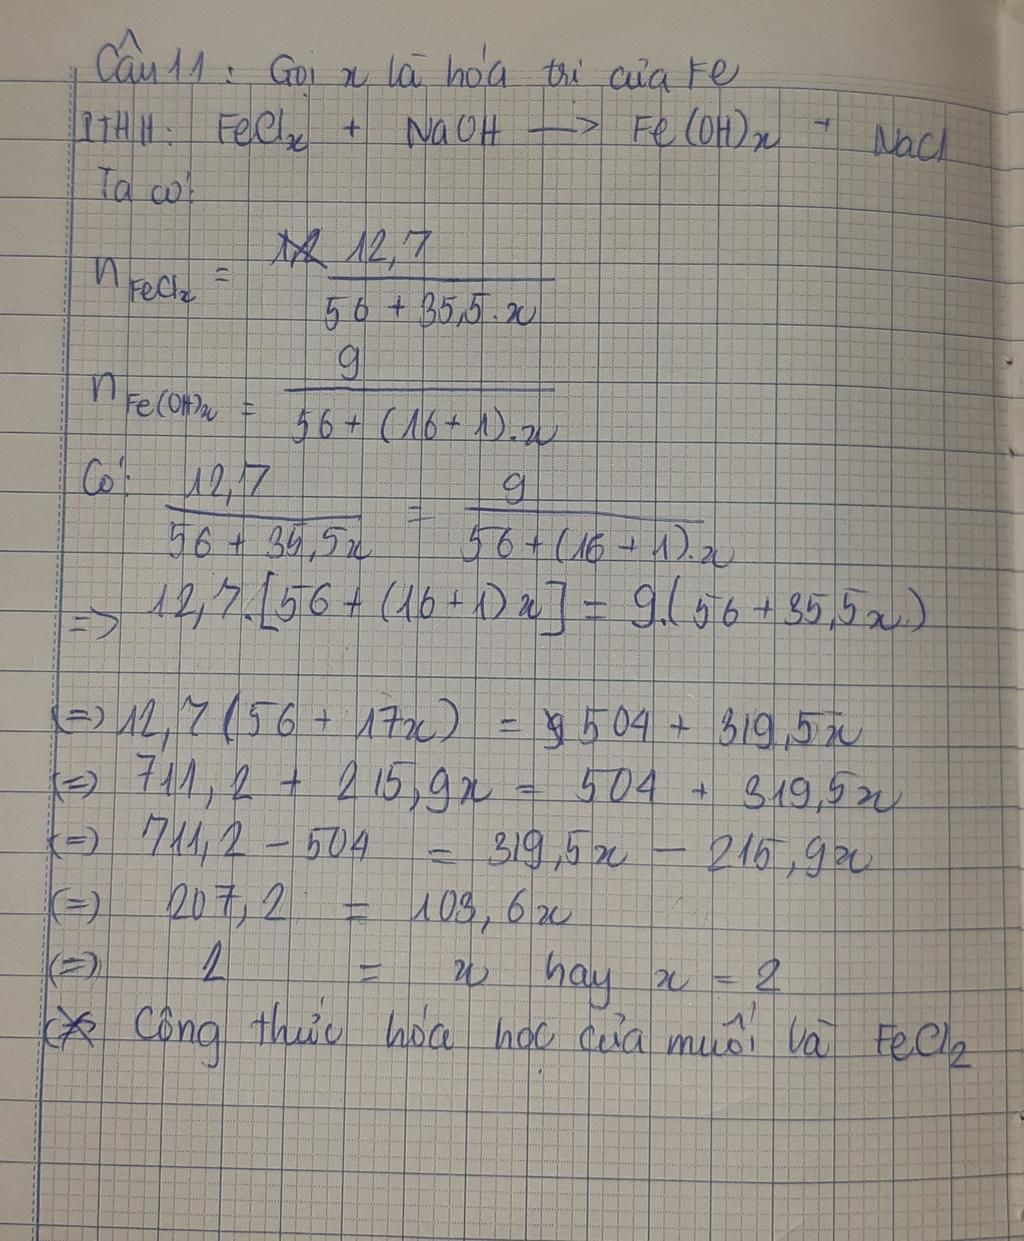 Câu 11: Gọi x là hóa trị của Fe
PTHH: FeClₓ + NaOH → Fe(OH)ₓ + NaCl
Ta có:
n FeClₓ = 12,7 / (56 + 35,5.x)
n Fe(OH)ₓ = 9 / (56 + (16+1).x)
Có: 12,7 / (56 + 35,5x) = 9 / (56 + (16+1).x)
=> 12,7.[56 + (16+1)x] = 9.(56 + 35,5x)
(=) 12,7(56 + 17x) = 504 + 319,5x
(=) 711,2 + 215,9x = 504 + 319,5x
(=) 711,2 - 504 = 319,5x - 215,9x
(=) 207,2 = 103,6x
(=) 2 = x hay x = 2
Công thức hóa học của muối là FeCl₂